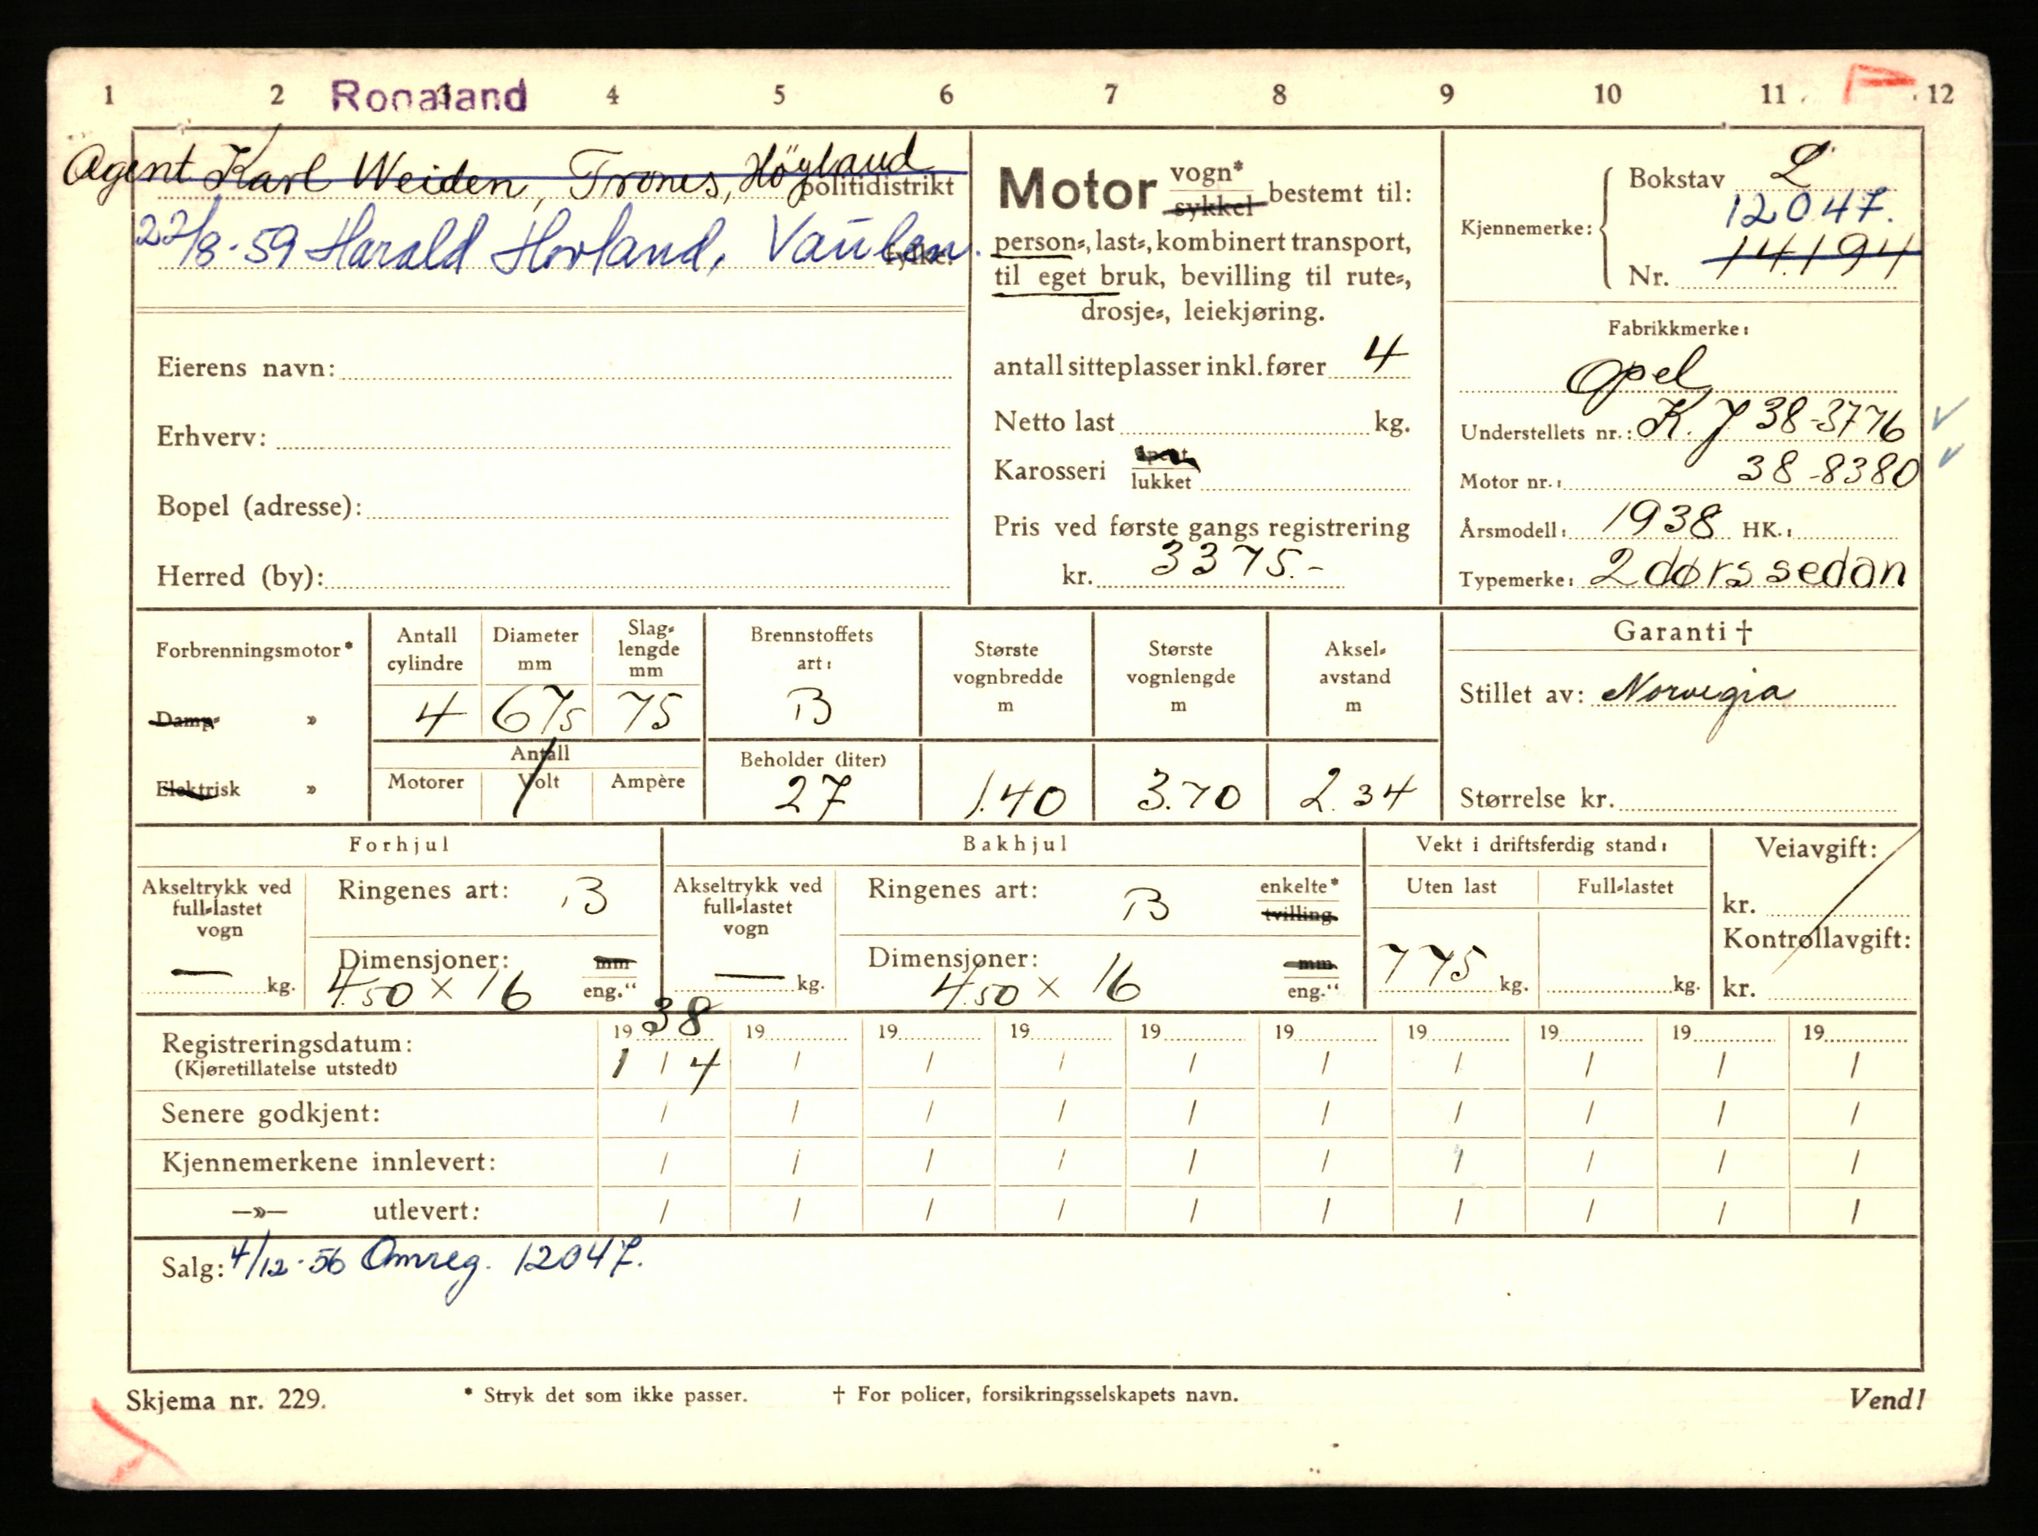 1 2 3 4 5 6 7 8 9 10 11 12
Rogaland
Agent Karl Weiden, Trones, Höyland
politidistrikt
22/8-59 Harald Hovland, Vaulen.
fylke.
Eierens navn:
Erhverv:
Bopel (adresse):
Herred (by):
Motor vogn* sykkel bestemt til:
person-, last-, kombinert transport,
til eget bruk, bevilling til rute-,
drosje-, leiekjøring.
antall sitteplasser inkl. fører 4
Netto last kg.
Karosseri åpent lukket
Pris ved første gangs registrering
kr. 3375.-
Kjennemerke: Bokstav L
12047.
Nr. 14.194
Fabrikkmerke:
Opel
Understellets nr.: K.J 38-3776
Motor nr.: 38-8380
Årsmodell: 1938 HK.:
Typemerke: 2 dørs sedan
Forbrenningsmotor*
Damp- »
Elektrisk »
Antall cylindre 4
Diameter mm 67,5
Slag-lengde mm 75
Antall
Motorer Volt Ampère
Brennstoffets art: B
Beholder (liter) 27
Største vognbredde m 1.40
Største vognlengde m 3.70
Aksel-avstand m 2.34
Garanti †
Stillet av: Norvegia
Størrelse kr.
Forhjul
Akseltrykk ved full-lastet vogn — kg.
Ringenes art: B
Dimensjoner: 4.50 x 16 mm eng."
Bakhjul
Akseltrykk ved full-lastet vogn — kg.
Ringenes art: B enkelte* tvilling.
Dimensjoner: 4.50 x 16 mm eng."
Vekt i driftsferdig stand:
Uten last 775 kg.
Full-lastet kg.
Veiavgift:
kr.
Kontrollavgift:
kr.
19 38 19 19 19 19 19 19 19 19 19
Registreringsdatum: 1 / 4 / / / / / / / / /
(Kjøretillatelse utstedt)
Senere godkjent: / / / / / / / / / /
Kjennemerkene innlevert: / / / / / / / / / /
—»— utlevert: / / / / / / / / / /
Salg: 4/12-56 Omreg. 12047.
Skjema nr. 229.
* Stryk det som ikke passer.
† For policer, forsikringsselskapets navn.
Vend!